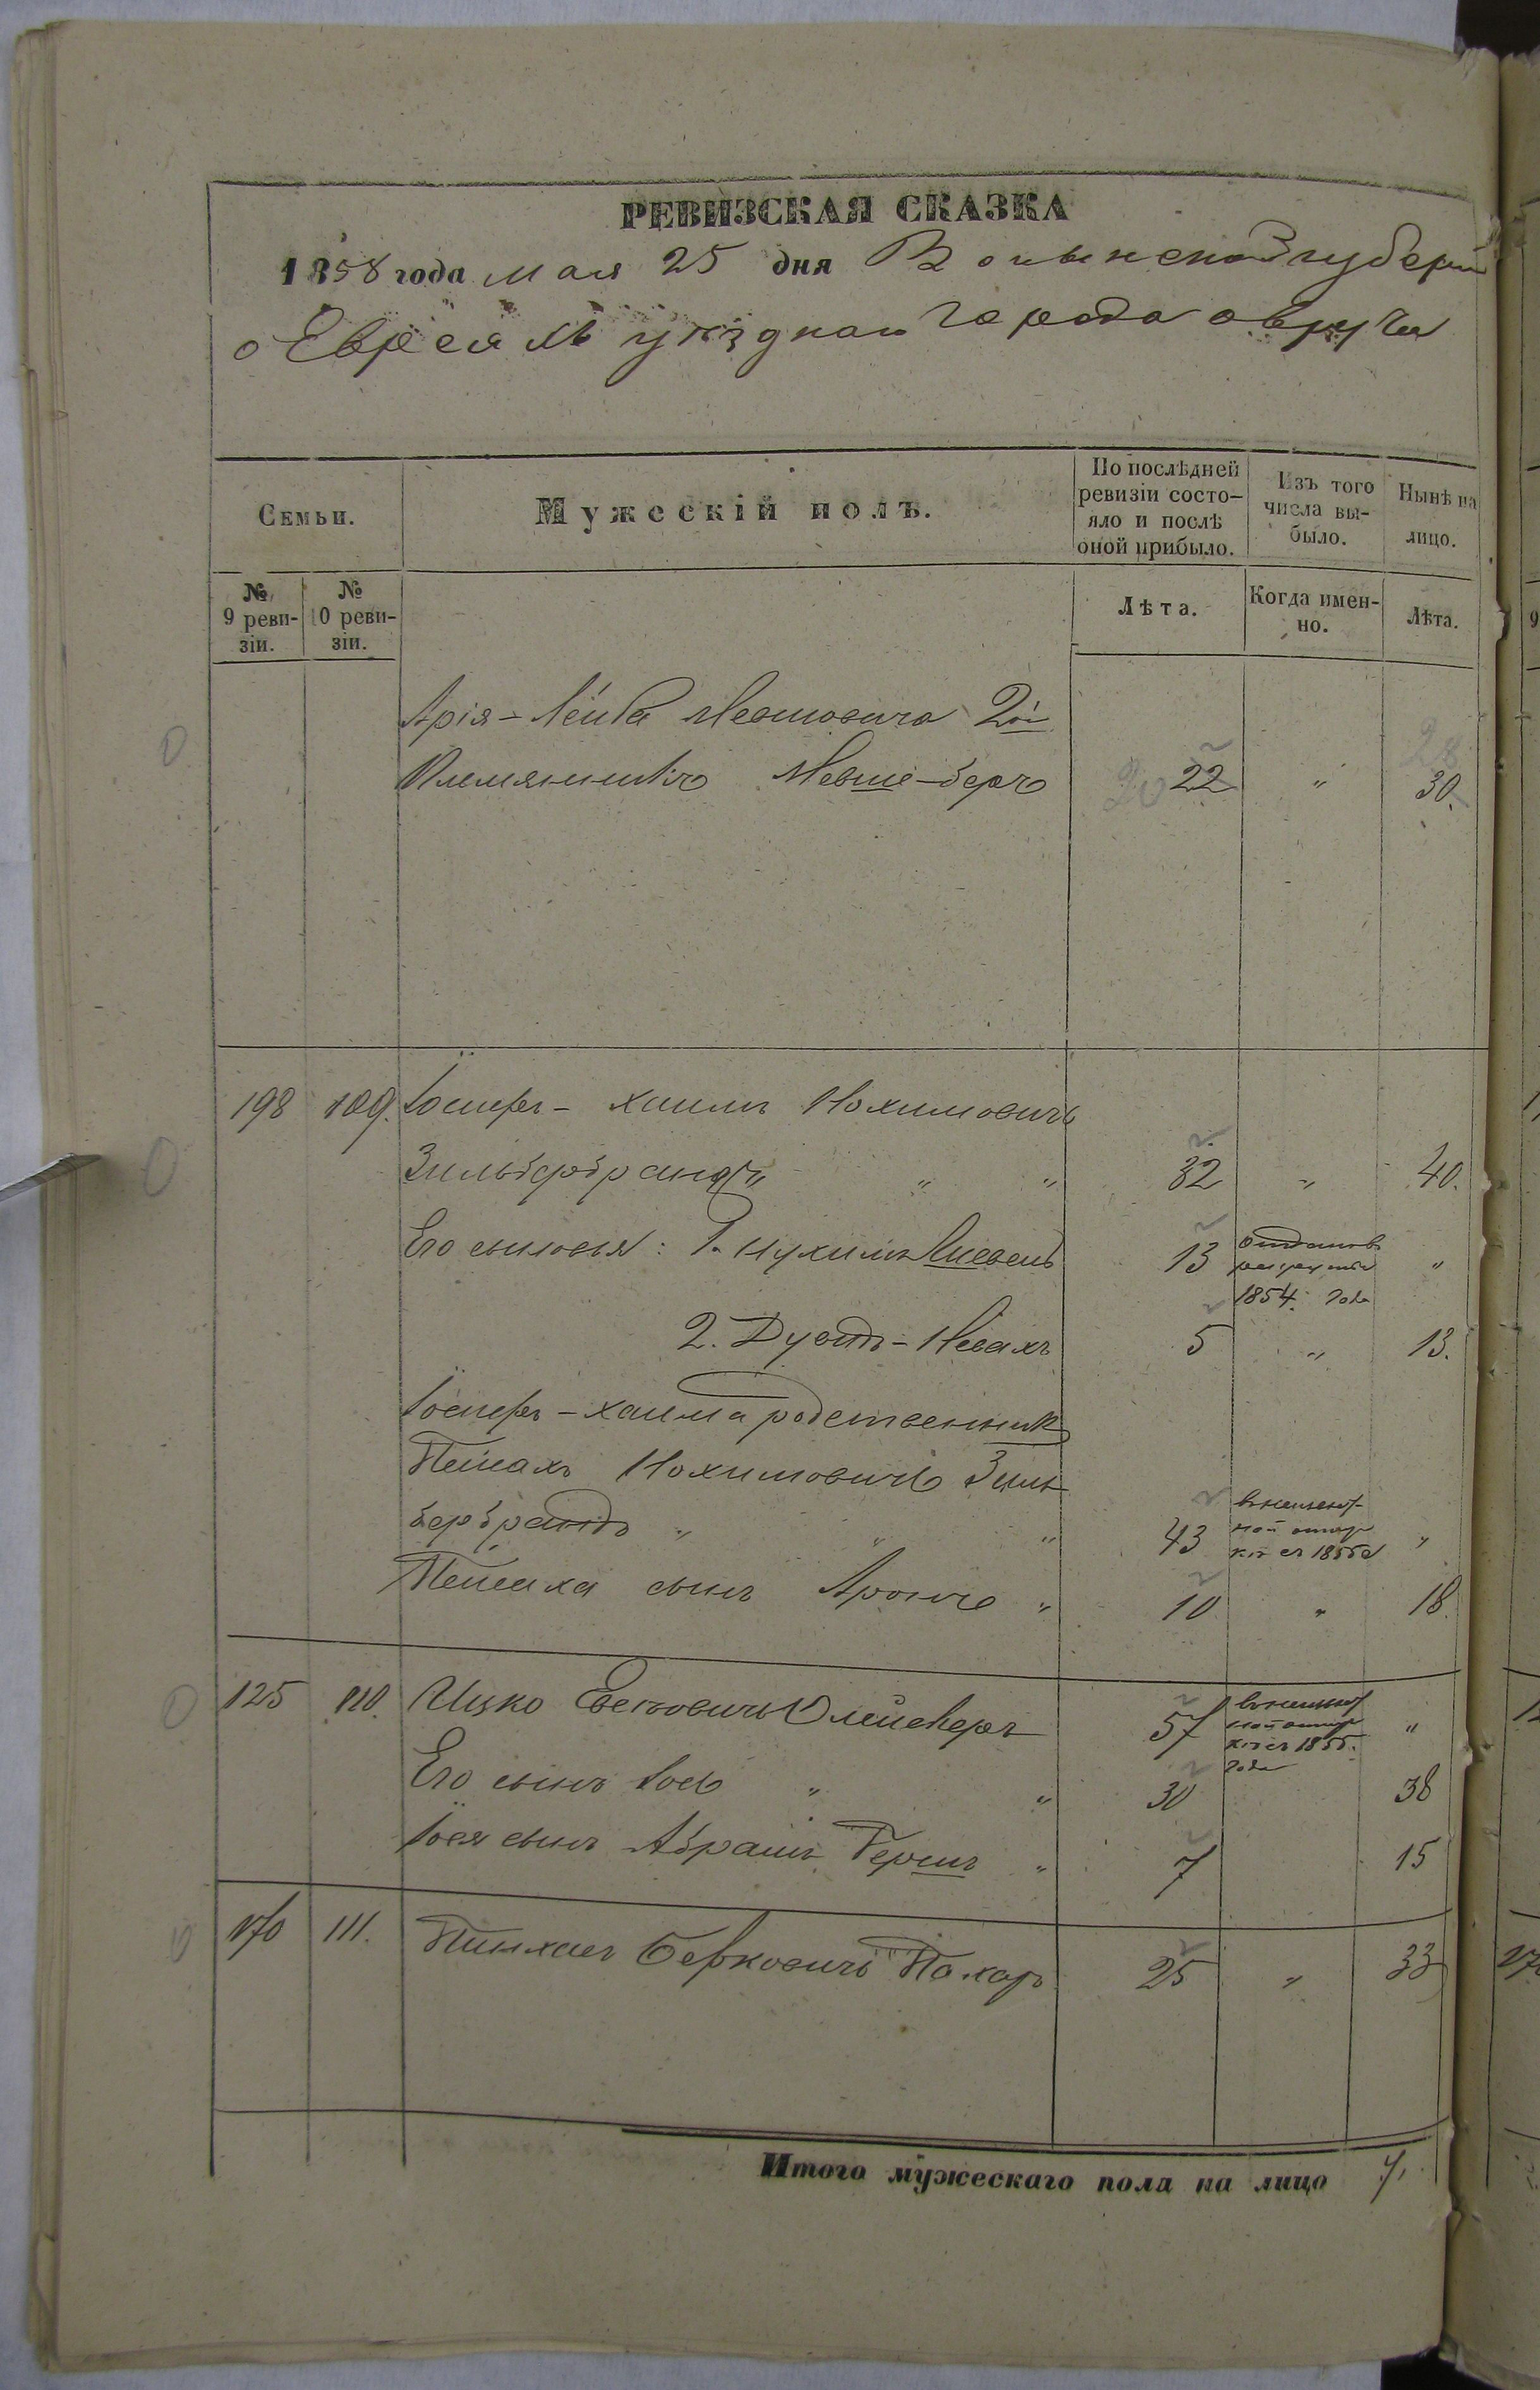 РЕВИЗСКАЯ СКАЗКА
1858 года мая 25 дня Волынской губернii
о Евреяхъ уѣзднаго города овруча
Семьи.
Мужескій полъ.
По послѣдней ревизіи состояло и послѣ оной прибыло.
Изъ того числа выбыло.
Нынѣ на лицо.
№ 9 ревизіи.
№ 10 ревизіи.
Лѣта.
Когда именно.
Лѣта.
Арія-Лейба Мевшовича 2й
Племянникъ Мевше-беръ 20 22 " 28 30.
198 109. Іосифъ-хаимъ Нохимовичъ
Зильбербрандъ " " " 32 " 40.
Его сыновья: 1. Нухимъ 13 отданъ в рекруты 1854. года "
2. Дувидъ-Невахъ 5 " 13.
Іосифъ-хаима родственник
Пейсахъ Нохимовичъ Зиль
бербрандъ " " " 43 въ 1855 "
Пейсаха сынъ Аронъ " 10 " 18.
125 110. Ицко 57 въ 1855. года "
Его сынъ Іось " " 30 38
Іося сынъ Абрамъ Гершъ " 7 15
170 111. Пинхасъ Берковичъ Похоръ 25 " 33
Итого мужескаго пола на лицо 7,